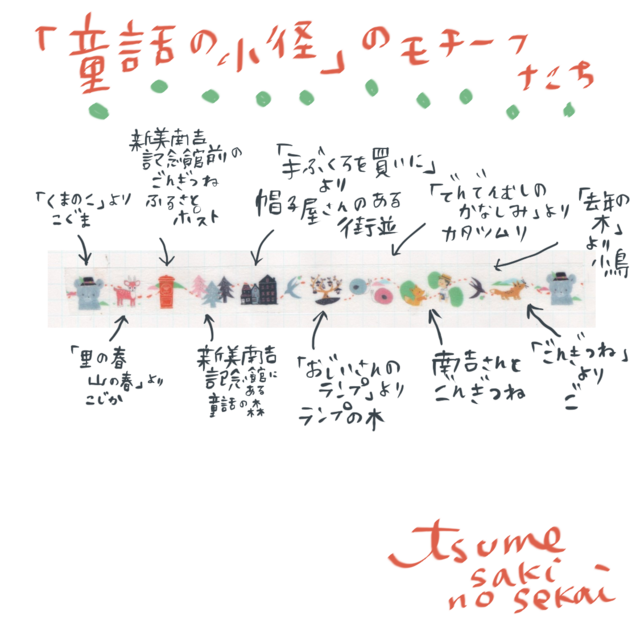 「童話の小径」のモチーフ
たち
「くまのこ」より
こぐま
新美南吉
記念館前の
ごんぎつね
ふるさと
ポスト
「手ぶくろを買いに」
より
帽子屋さんのある
街並
「でんでんむしの
かなしみ」より
カタツムリ
「去年の
木」
より
小鳥
「里の春
山の春」より
こじか
新美南吉
記念館に
ある
童話の森
「おじいさんの
ランプ」より
ランプの木
南吉さんと
ごんぎつね
「ごんぎつね」
より
ごん
tsume
saki
no sekai